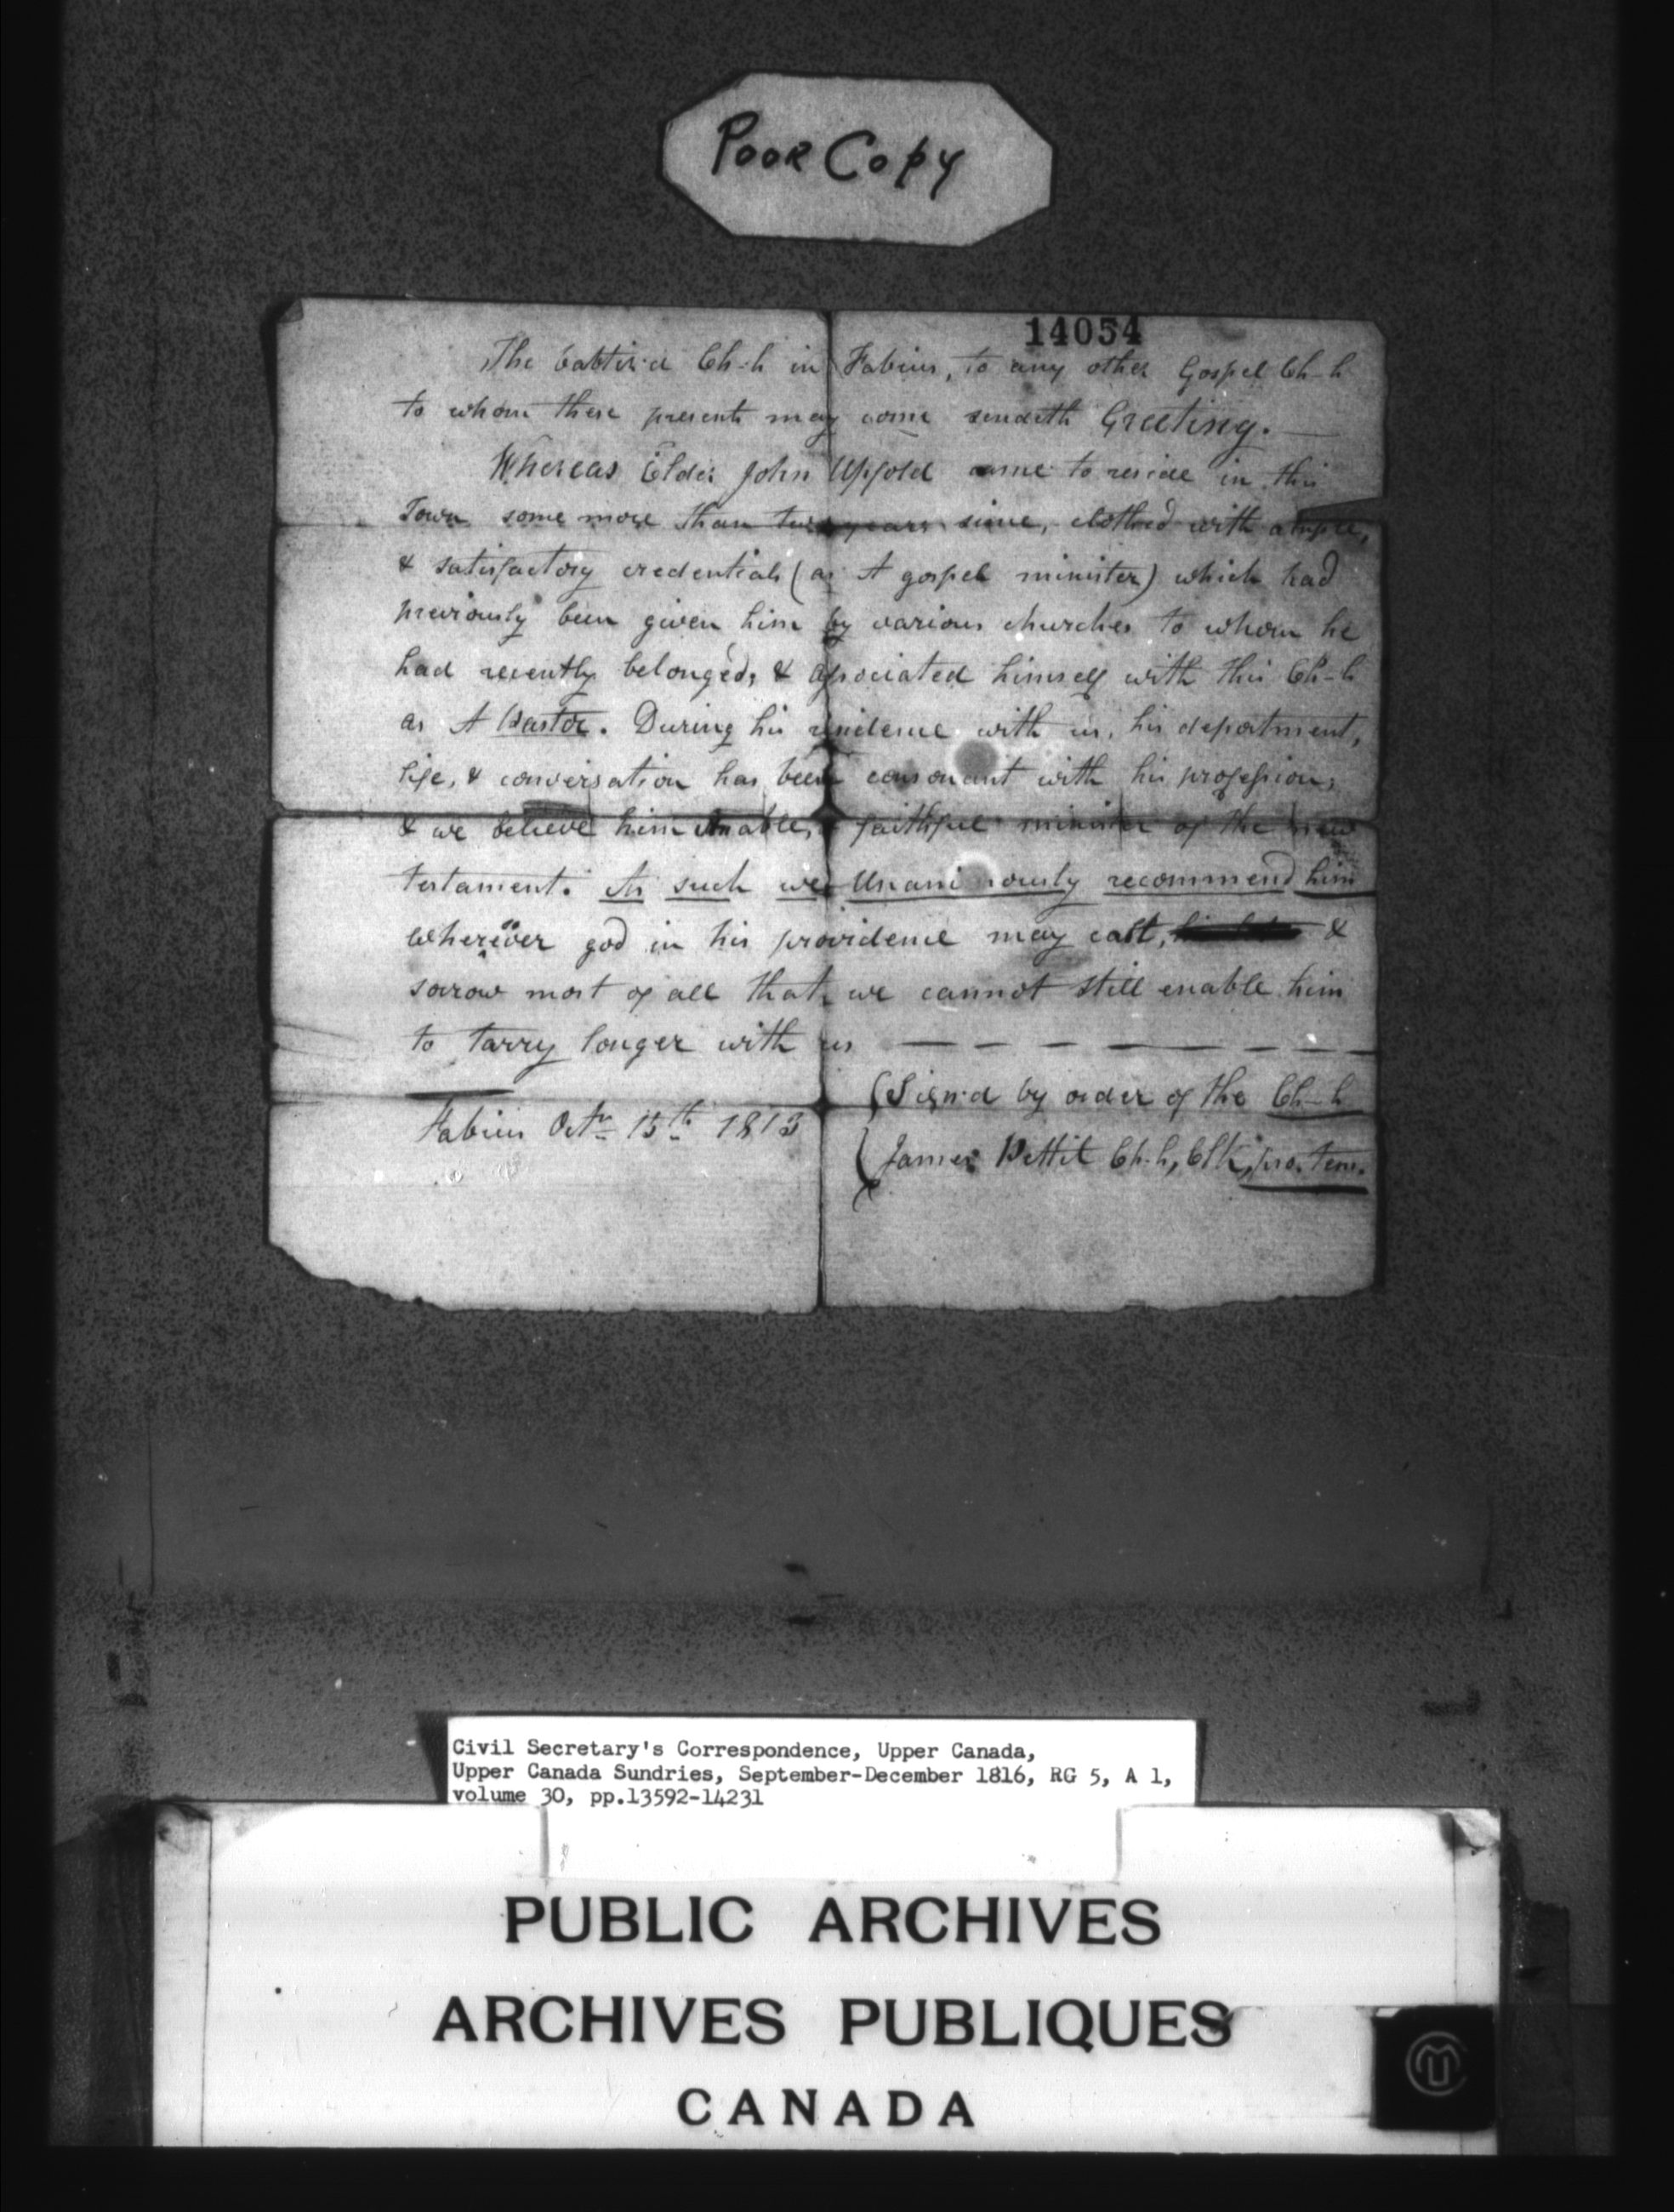 Poor Copy
14054
The babtiz'd Ch-h in Fabius, to any other Gospel Ch-h
to whom these presents may come sendeth Greeting.
Whereas Elder John Upfold came to reside in this
Town some more than two years since, clothed with ample,
& satisfactory credentials (as A gospel minister) which had
previously been given him by various churches to whom he
had recently belonged, & associated himself with this Ch-h
as A Pastor. During his residence with us, his deportment,
life, & conversation has been consonant with his profession,
& we believe him able, faithful minister of the new
testament. As such we Unanimously recommend him
wherever god in his providence may call, &
sorrow most of all that we cannot still enable him
to tarry longer with us
(Sign'd by order of the Ch-h
Fabius Octr 15th 1813
(James Pettit Ch-h, Clk, pro. tem.
Civil Secretary's Correspondence, Upper Canada,
Upper Canada Sundries, September-December 1816, RG 5, A 1,
volume 30, pp.13592-14231
PUBLIC ARCHIVES
ARCHIVES PUBLIQUES
CANADA